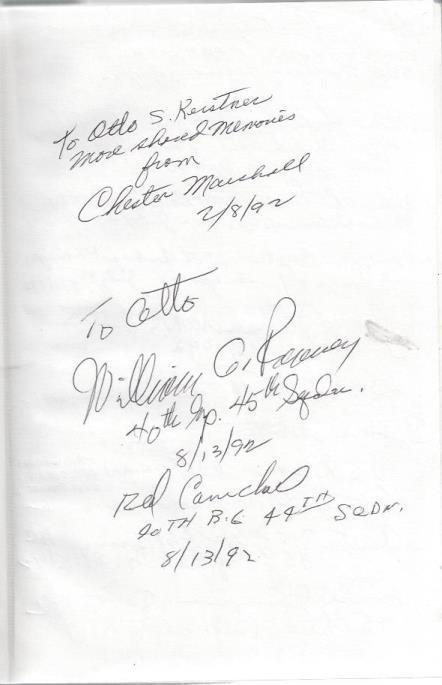 To Otto S. Kerstner
More shared Memories
from
Chester Marshall
2/8/92
To Otto
William G. Rooney
40th Gp. 45th Sqdn.
8/13/92
Red Carmichael
40TH B.G 44TH SQDN.
8/13/92